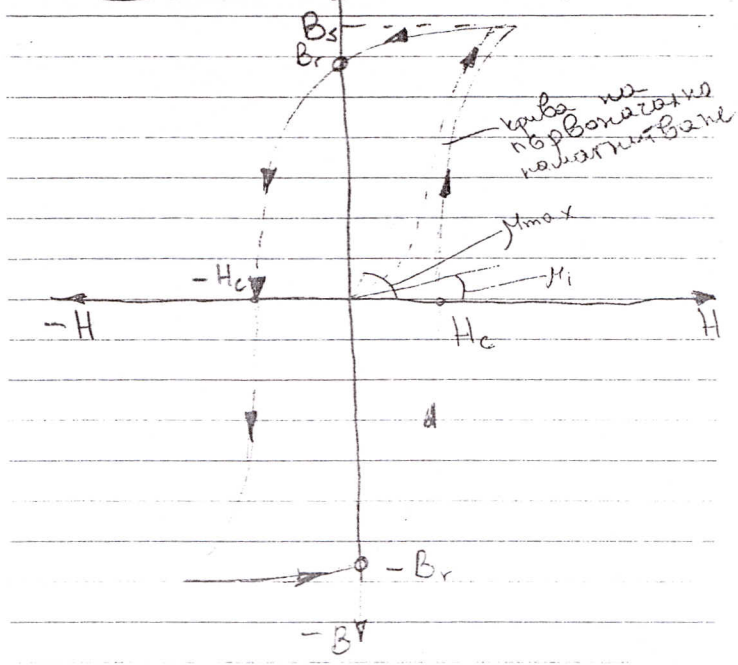 Bs
Br
крива на
първоначално
намагнитване
μmax
-Hc
μi
-H
Hc
H
-Br
-B